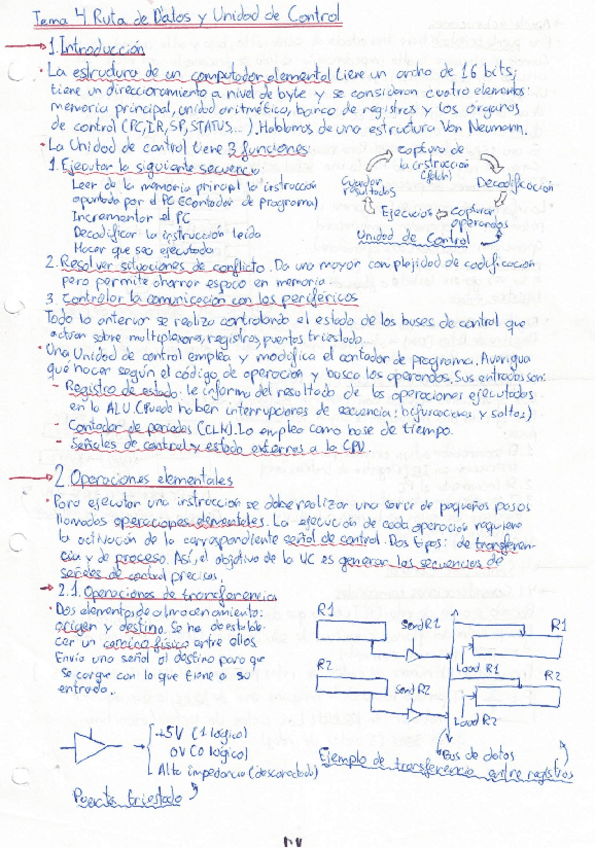 Tema 4 Ruta de Datos y Unidad de Control
1. Introducción
· La estructura de un computador elemental tiene un ancho de 16 bits;
tiene un direccionamiento a nivel de byte y se consideran cuatro elementos:
memoria principal, unidad aritmética, banco de registros y los órganos
de control (PC, IR, SP, STATUS...). Hablamos de una estructura Von Neumann.
· La Unidad de control tiene 3 funciones
1. Ejecutar la siguiente secuencia:
Leer de la memoria principal la instrucción
apuntada por el PC (Contador de programa)
Incrementar el PC
Decodificar la instrucción leída
Hacer que sea ejecutada
captura de
la instrucción
(fetch)
Decodificación
Capturar
operandos
Ejecución
Guardar
resultados
Unidad de Control
2. Resolver situaciones de conflicto. Da una mayor complejidad de codificación
pero permite ahorrar espacio en memoria
3. Controlar la comunicación con los periféricos
Todo lo anterior se realiza controlando el estado de los buses de control que
actúan sobre multiplexores, registros, puertas triestado.
· Una Unidad de control emplea y modifica el contador de programa. Averigua
qué hacer según el código de operación y busca los operandos. Sus entradas son:
- Registro de estado: le informa del resultado de las operaciones ejecutadas
en la ALU. (Puede haber interrupciones de secuencia: bifurcaciones y saltos)
- Contador de periodos (CLK). Lo emplea como base de tiempo.
- Señales de control y estado externas a la CPU.
2. Operaciones elementales
· Para ejecutar una instrucción se debe realizar una serie de pequeños pasos
llamados operaciones elementales. La ejecución de cada operación requiere
la activación de la correspondiente señal de control. Dos tipos: de transferen-
cia y de proceso. Así, el objetivo de la UC es generar las secuencias de
señales de control precisas.
2.1. Operaciones de transferencia
· Dos elementos de almacenamiento:
origen y destino. Se ha de estable-
cer un camino físico entre ellos.
Envío una señal al destino para que
se cargue con lo que tiene a su
entrada.
R1
Send R1
R1
Load R1
R2
Send R2
R2
Load R2
Bus de datos
Ejemplo de transferencia entre registros
+5V (1 lógico)
0V (0 lógico)
Alta impedancia (desconectado)
Puerta triestado